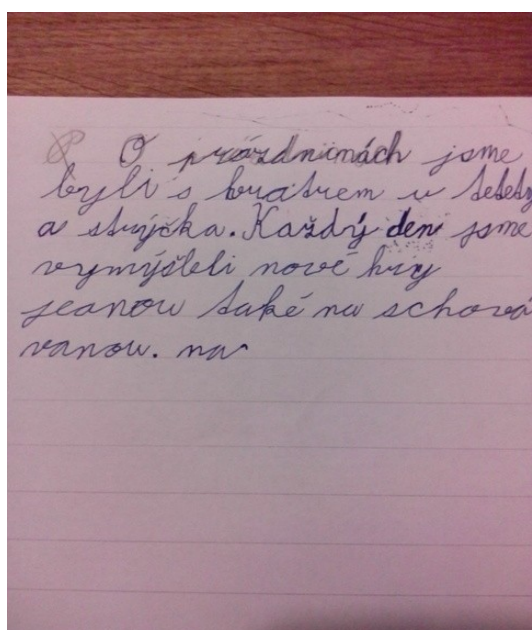 O prázdninách jsme
byli s bratrem u tetety
a strýčka. Každý den jsme
vymýšleli nové hry
jeanou také na schová
vanou. na